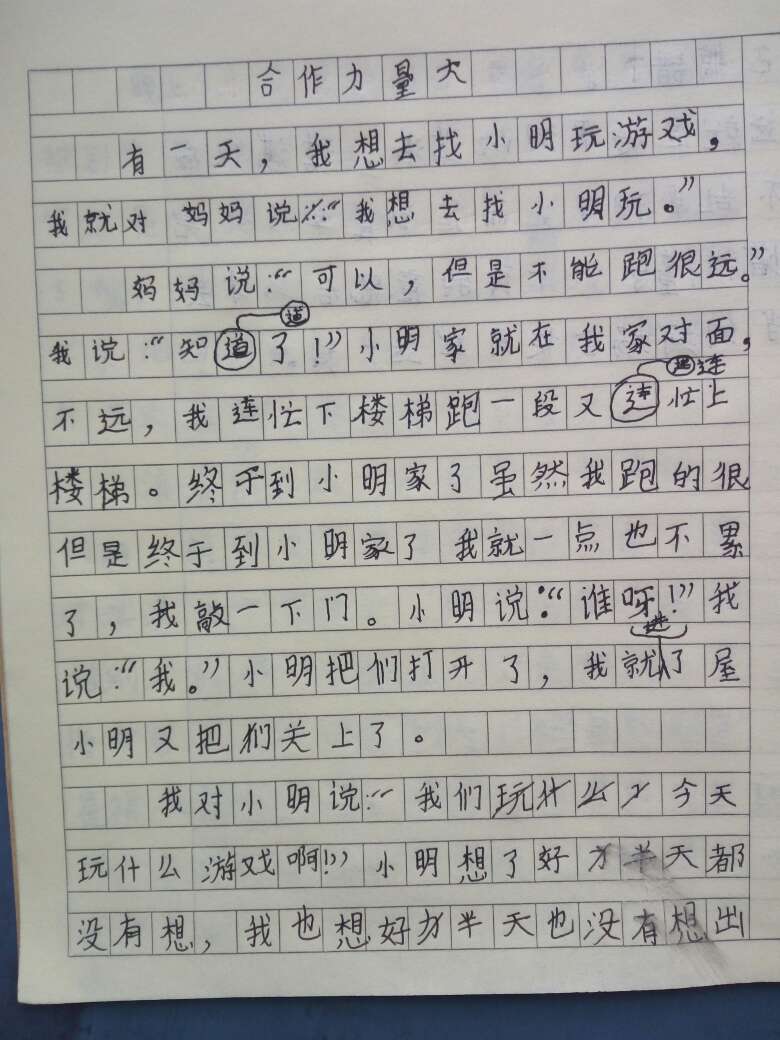 合作力量大
有一天，我想去找小明玩游戏，
我就对妈妈说：“我想去找小明玩。”
妈妈说：“可以，但是不能跑很远。”
道
我说：“知道了！”小明家就在我家对面，
连
不远，我连忙下楼梯跑一段又连忙上
楼梯。终于到小明家了虽然我跑的很
但是终于到小明家了我就一点也不累
了，我敲一下门。小明说：“谁呀！”我
进
说：“我。”小明把们打开了，我就了屋
小明又把们关上了。
我对小明说：“我们玩什么了今天
玩什么游戏啊！”小明想了好半天都
没有想，我也想好半天也没有想出